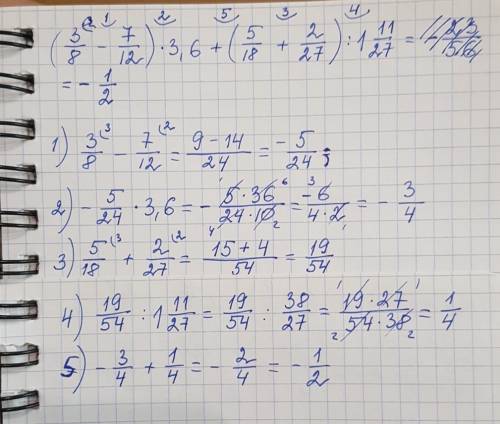 (3/8 − 7/12) · 3,6 + (5/18 + 2/27) : 1 11/27 =
= − 1/2
1) 3/8 − 7/12 = (9 − 14)/24 = − 5/24;
2) − 5/24 · 3,6 = − (5 · 36)/(24 · 10) = −6/(4 · 2) = − 3/4
3) 5/18 + 2/27 = (15 + 4)/54 = 19/54
4) 19/54 : 1 11/27 = 19/54 : 38/27 = (19 · 27)/(54 · 38) = 1/4
5) − 3/4 + 1/4 = − 2/4 = − 1/2